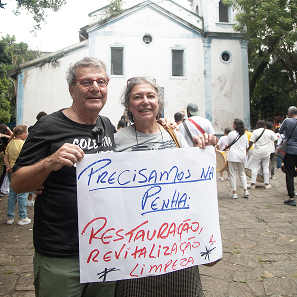 PRECISAMOS NA
PENHA:
RESTAURAÇÃO,
REVITALIZAÇÃO
LIMPEZA